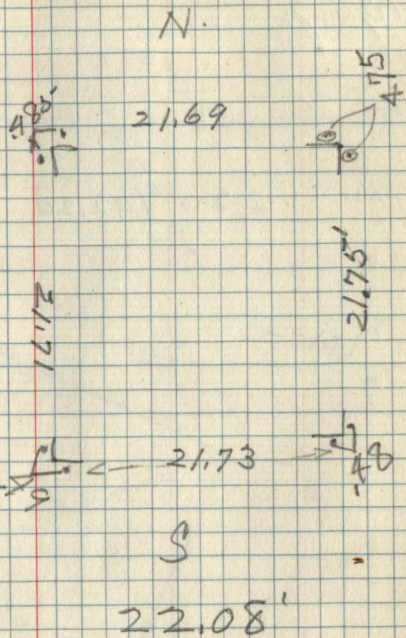 N.
.485'
21.69
.475
21.71
21.75'
21.73
.48
S
22.08'